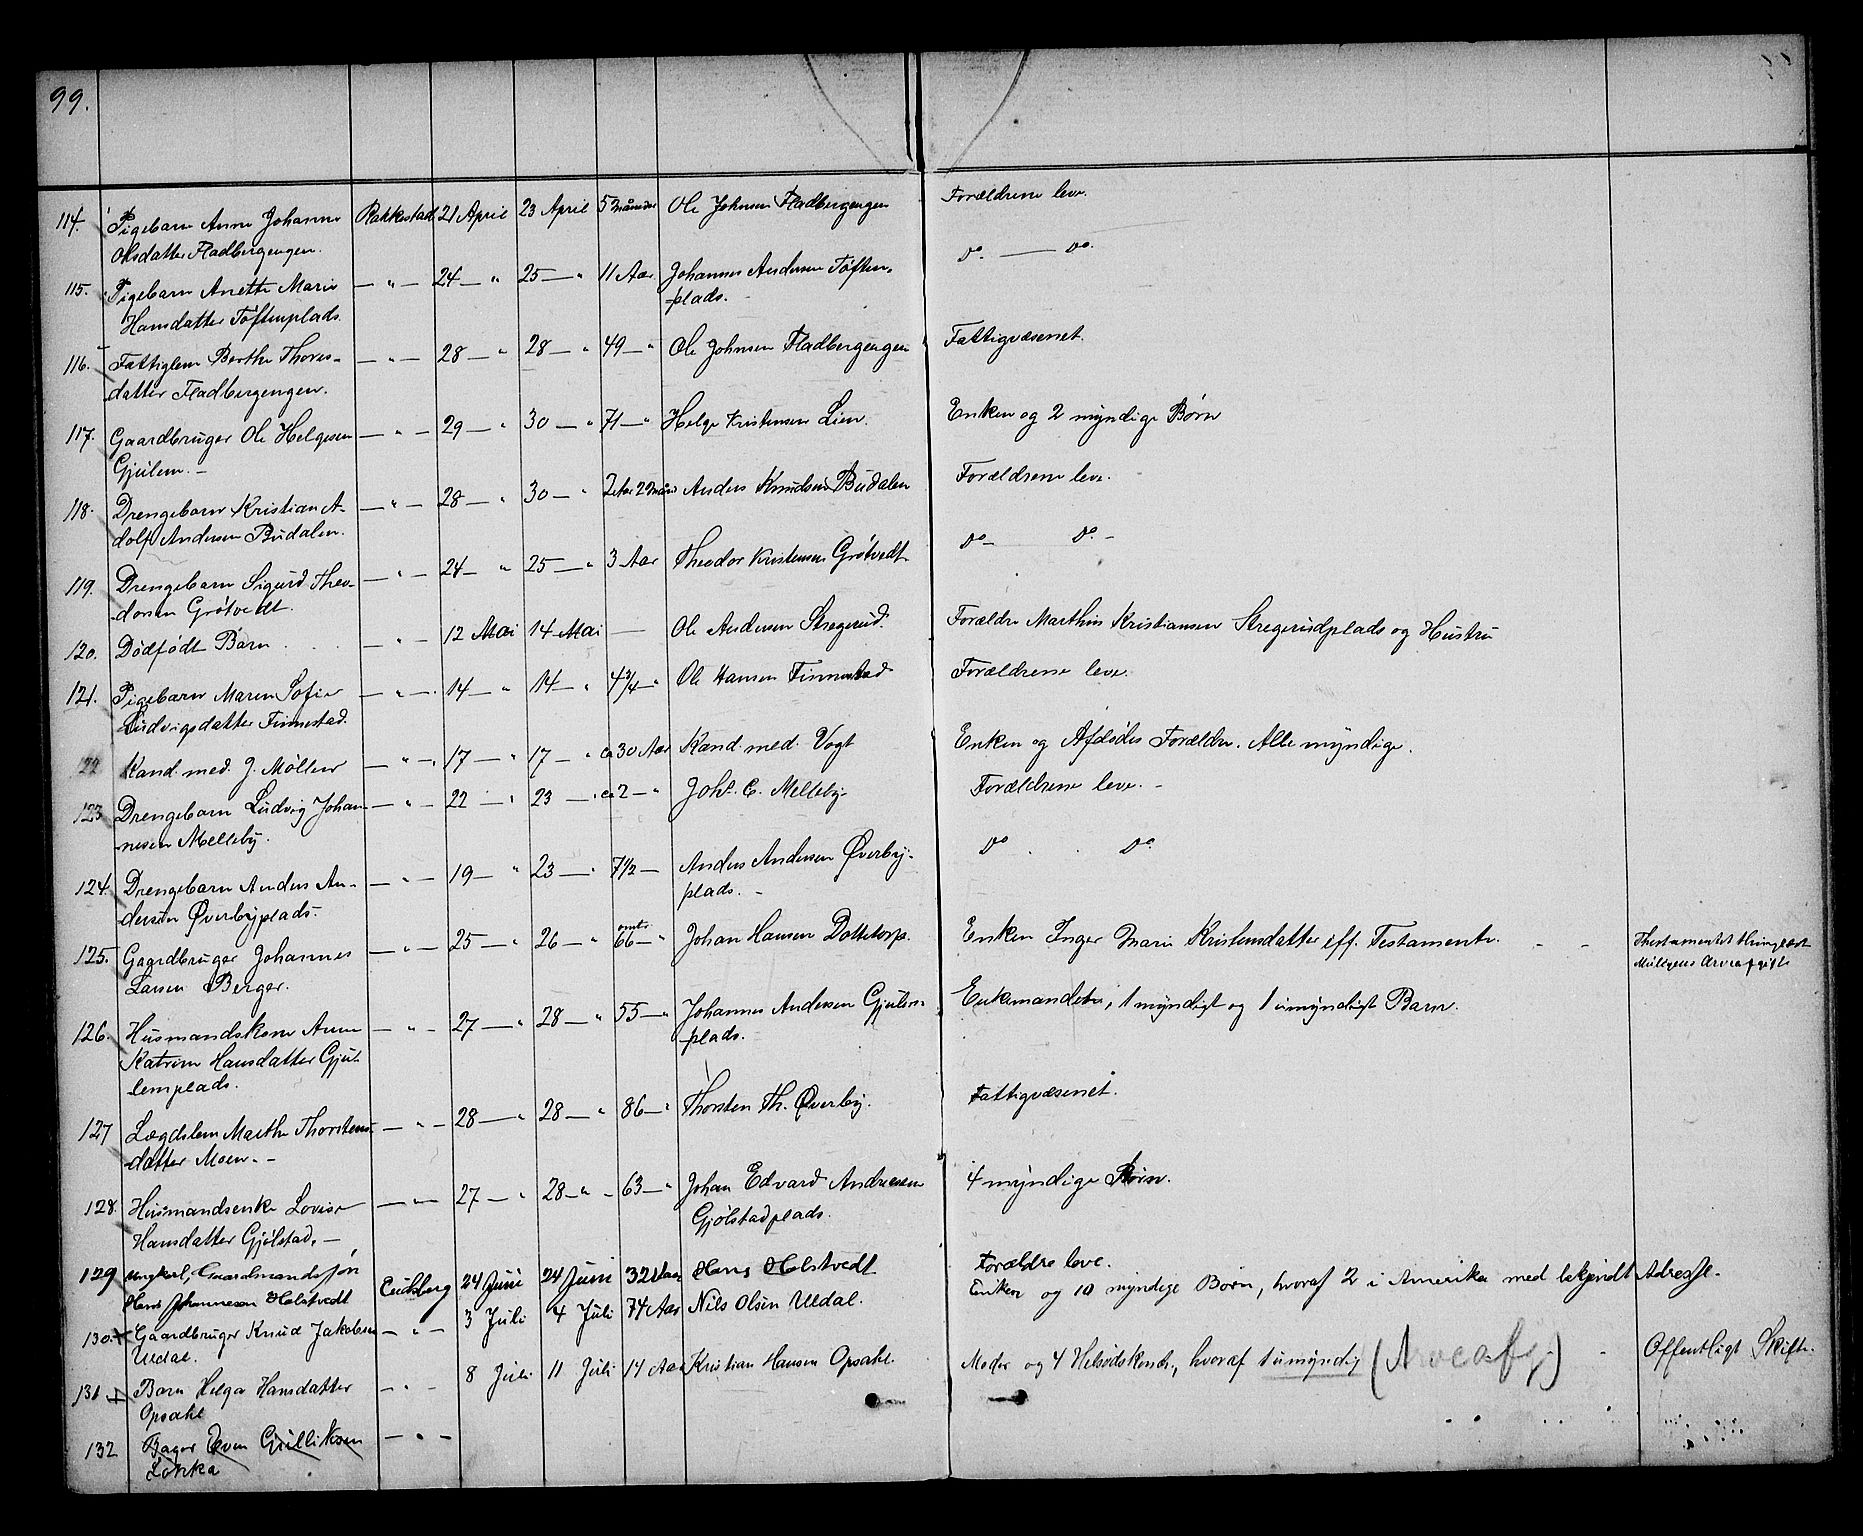 99.
114. Pigebarn Anne Johanne Rakkestad 21 April 23 April 5 Måneder Ole Johnsen Fladbergengen Forældrene leve.
Olsdatter Fladbergengen.
115. Pigebarn Anette Marie — " — 24 — " 25 — " 11 Aar Johannes Andersen Töften- Do. — Do.
Hansdatter Töftenplads. plads. -
116. Fattiglem Berthe Thores- — " — 28 — " 28 — " 49 — " Ole Johnsen Fladbergengen Fattigvæsenet.
datter Fladbergengen.
117. Gaardbruger Ole Helgesen — " — 29 — " 30 — " 71 — " Helge Kristensen Lien. Enken og 2 myndige Børn
Gjulem. -
118. Drengebarn Kristian A- — " — 28 — " 30 — " 2 Aar 2 Mån Anders Knudsen Budalen Forældrene leve.
dolf Andersen Budalen.
119. Drengebarn Sigurd Theo- — " — 24 — " 25 — " 3 Aar Theodor Kristensen Grötvedt Do — Do. -
dorsen Grötvedt.
120. Dödfödt Barn . . . — " — 12 Mai 14 Mai — Ole Andersen Stregerud. Forældre Marthin Kristiansen Stregerudplads og Hustru
121. Pigebarn Maren Sofie — " — 14 — " 14 — " 4 3/4 — " Ole Hansen Finnestad Forældrene leve.
Ludvigsdatter Finnestad.
122 Kand. med. J. Möller — " — 17 — " 17 — " ca 30 Aar Kand. med. Vogt Enken og Afdødes Forældre. Alle myndige.
123 Drengebarn Ludvig Johan- — " — 22 — " 23 — " ca 2 — " Johs. C. Melleby Forældrene leve. -
nesen Melleby.
124. Drengebarn Anders An- — " — 19 — " 23 — " 7 1/2 — Anders Andersen Øverby- Do . . Do
dersen Øverbyplads. plads. -
125. Gaardbruger Johannes — " — 25 — " 26 — " omtr 66 — " Johan Hansen Dottetorp. Enken Inger Marie Kristensdatter eff. Testamente. - - Thestamentet thinglæst
Larsen Berger. Arveafgift
126. Husmandskone Anne — " — 27 — " 28 — " 55 — " Johannes Andersen Gjulem- Enkemanden, 1 myndigt og 1 umyndigt Barn.
Katrine Hansdatter Gju- plads.
lemplads.
127 Lægdslem Marthe Thorstens- — " — 28 — " 28 — " 86 — " Thorsten Th. Øverby. Fattigvæsenet.
datter Moen. -
128. Husmandsenke Lovise — " — 27 — " 28 — " 63 — " Johan Edvard Andresen 4 myndige Børn.
Hansdatter Gjölstad. - Gjölstadplads.
129 Ungkarl, Gaardmandssøn Eidsberg 24 Juni 24 Juni 32 Aar Hans Holstvedt Forældre leve.
Hans Johannesen Holstvedt
130. + Gaardbruger Knud Jakobsen — " — 3 Juli 4 Juli 74 Aar Nils Olsen Uldal. Enken og 10 myndige Børn, hvoraf 2 i Amerika med bekjendt Adresse.
Uldal.
131 + Barn Helga Hansdatter — " — 8 Juli 11 Juli 14 Aar Kristian Hansen Opsahl. Moder og 4 Helsødskende, hvoraf 1 umyndig (Arveafg.) - Offentligt Skifte.
Opsahl
132 Bager Even Gulliksen — " —
Lökka